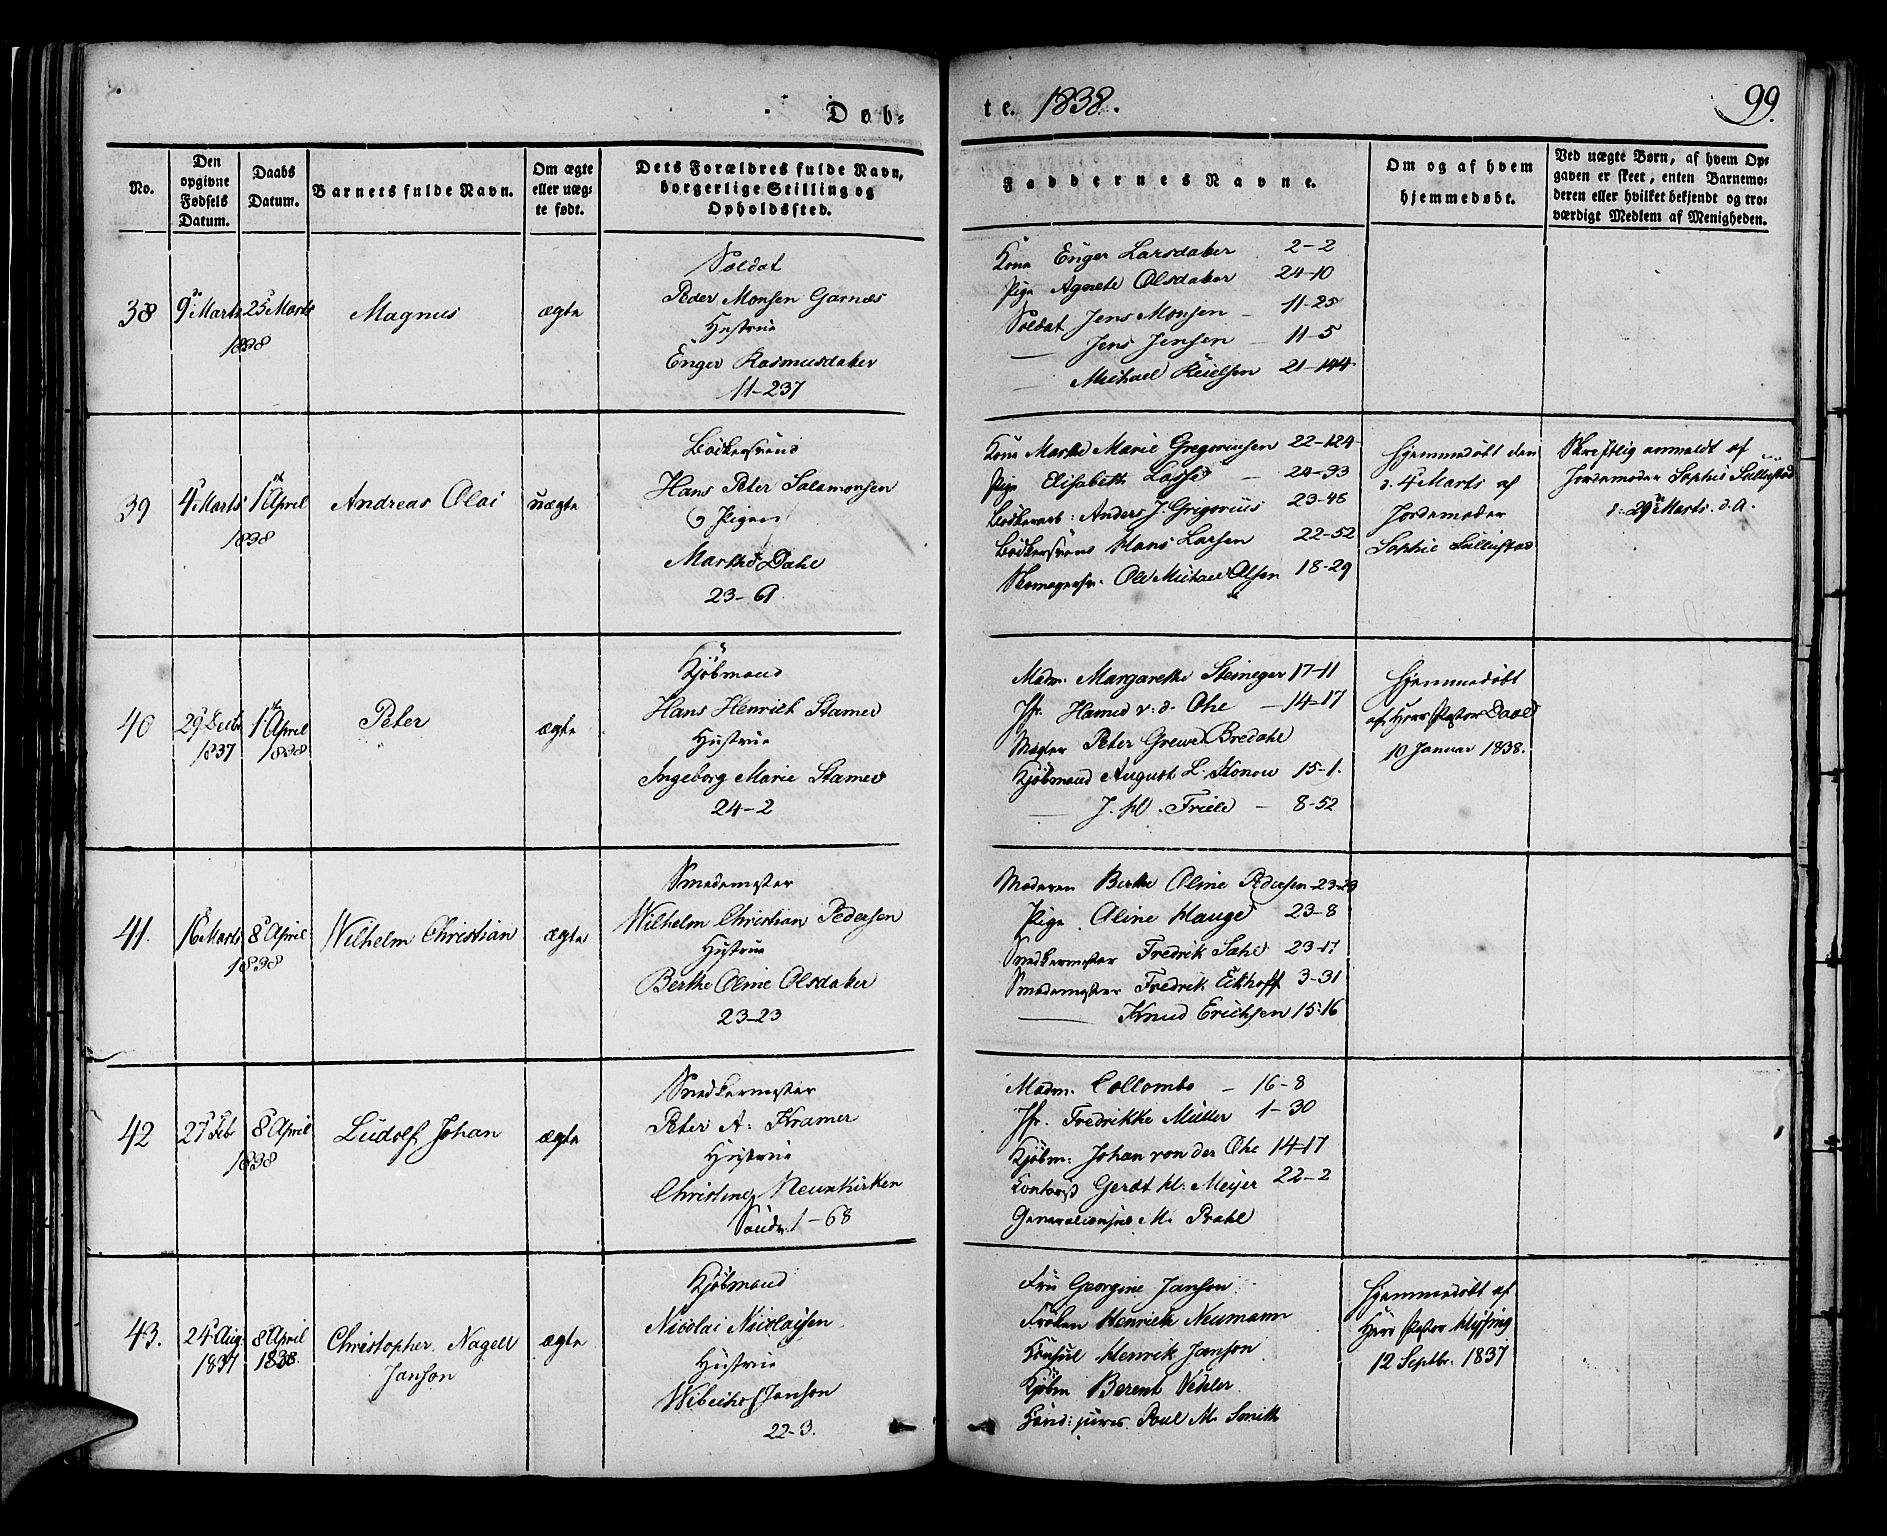 Døb-
te. 1838.
99.
No.
Den opgivne Fødsels Datum.
Daabs Datum.
Barnets fulde Navn.
Om ægte eller uæg-te født.
Dets Forældres fulde Navn, borgerlige Stilling og Opholdssted.
Faddernes Navne.
Om og af hvem hjemmedøbt.
Ved uægte Børn, af hvem Op-gaven er skeet, enten Barnemo-deren eller hvilket bekjendt og tro-værdigt Medlem af Menigheden.
38
9 Marts 25 Marts
1838
Magnus
ægte
Soldat
Peder Monsen Garnæs
Hustrue
Enger Rasmusdatter
11-237
Kone Enger Larsdatter 2-2
Pige Agnete Olsdatter 24-10
Soldat Jens Monsen - 11-25
— Jens Jensen - 11-5
— Michael 21-144
39
4 Marts 1 April
1838
Andreas Olai
uægte
Bødkersvend
Hans Peter Salamonsen
og Pigen
Marthe Dahl
23-61
Kone Marthe Marie Gregoriusen 22-124
Pige Elisabeth Lasse - 24-33
Anders J. Grigorius 23-48
Bødkersvend Hans Larsen 22-52
Ole Michael Olsen 18-29
Hjemmedøbt den
d. 4 Marts af
Jordemoder
Sophie
Skriftlig anmeldt af
Jordemoder Sophie
d. 29 Marts d. A.
40
29 Decbr 1 April
1837 1838
Peter
ægte
Kjøbmand
Hans Henrich Stamer
Hustrue
Ingeborg Marie Stamer
24-2
Madm. Margarethe Steineger 17-11
Jfr. v: d. Ohe - 14-17
Mægler Peter Grewe Bredahl
Kjøbmand August L. Konow 15-1.
— J. H. Friele - 8-52
Hjemmedøbt
af Herr Pastor Daae
10 Januar 1838.
41.
16 Marts 8 April
1838
Wilhelm Christian
ægte
Smedemester
Wilhelm Christian Pedersen
Hustrue
Berthe Oline Olsdatter
23-23
Moderen Berthe Oline Pedersen 23-23
Pige Oline Hauge 23-8
Snedkermester Fredrik Sahl 23-17
Smedemester Fredrik Eckhoff 3-31
— Knud Erichsen 15-16
42
27 Feb 8 April
1838
Ludolf Johan
ægte
Snedkermester
Peter A. Kramer
Hustrue
Christine Neunkirken
1-68
Madm. Collombo - 16-8
Jfr. Fredrikke Müller 1-30
Kjøbm: Johan von der Ohe 14-17
Kontorist Gerdt H. Meyer 22-2
M. Prahl
43.
24 Aug. 8 April
1837 1838.
Christopher Nagell
Janson
ægte
Kjøbmand
Nicolai Nicolaysen
Hustrue
Janson
22-3.
Fru Georgine Janson
Frøken Henrich Neumann
Konsul Henrik Janson
Kjøbm Berent Vedeler
Cand: juris Poul M. Smith
Hjemmedøbt af
Herr Pastor Hysing
12 Septbr. 1837